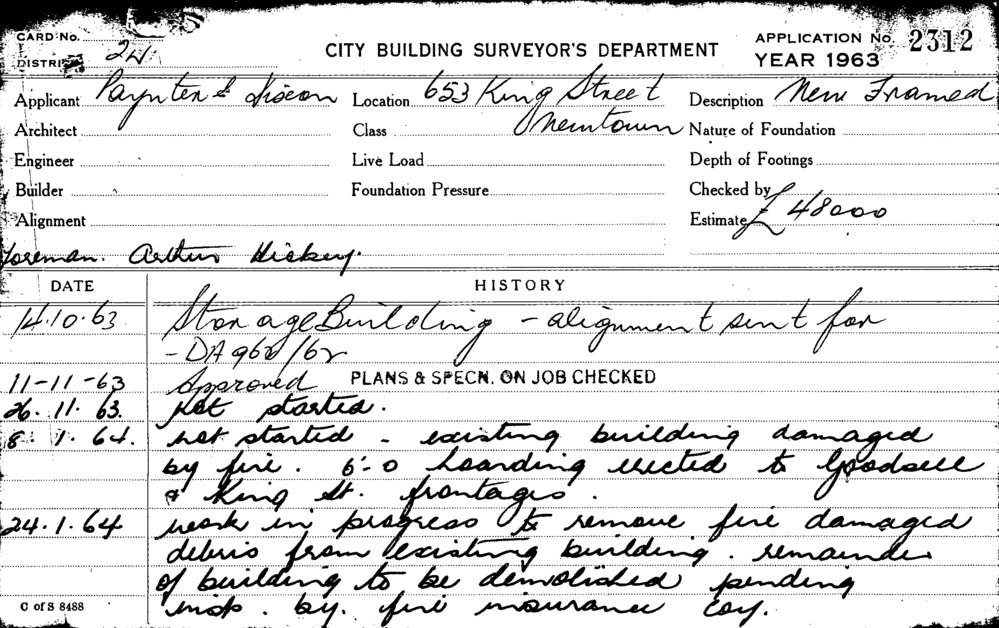 CARD No.
DISTRICT 24
CITY BUILDING SURVEYOR'S DEPARTMENT
APPLICATION No. 2312
YEAR 1963
Applicant Paynter & Dixon Location 653 King Street Description New Framed
Architect Class Newtown Nature of Foundation
Engineer Live Load Depth of Footings
Builder Foundation Pressure Checked by
Alignment Estimate £ 48000
Foreman. Arthur Hickey.
DATE HISTORY
14.10.63 Storage Building - alignment sent for
- DA 962/62
11-11-63 Approved PLANS & SPECN. ON JOB CHECKED
26.11.63. Not started.
8.1.64. not started - existing building damaged
by fire. 6'-0 hoarding erected to Goodsell
& King St. frontages.
24.1.64 work in progress to remove fire damaged
debris from existing building. remainder
of building to be demolished pending
insp. by. fire insurance coy.
C of S 8488